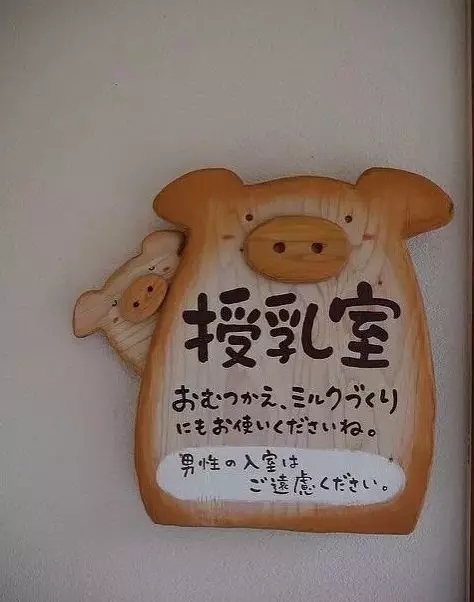 授乳室
おむつかえ、ミルクづくり
にもお使いくださいね。
男性の入室は
ご遠慮ください。